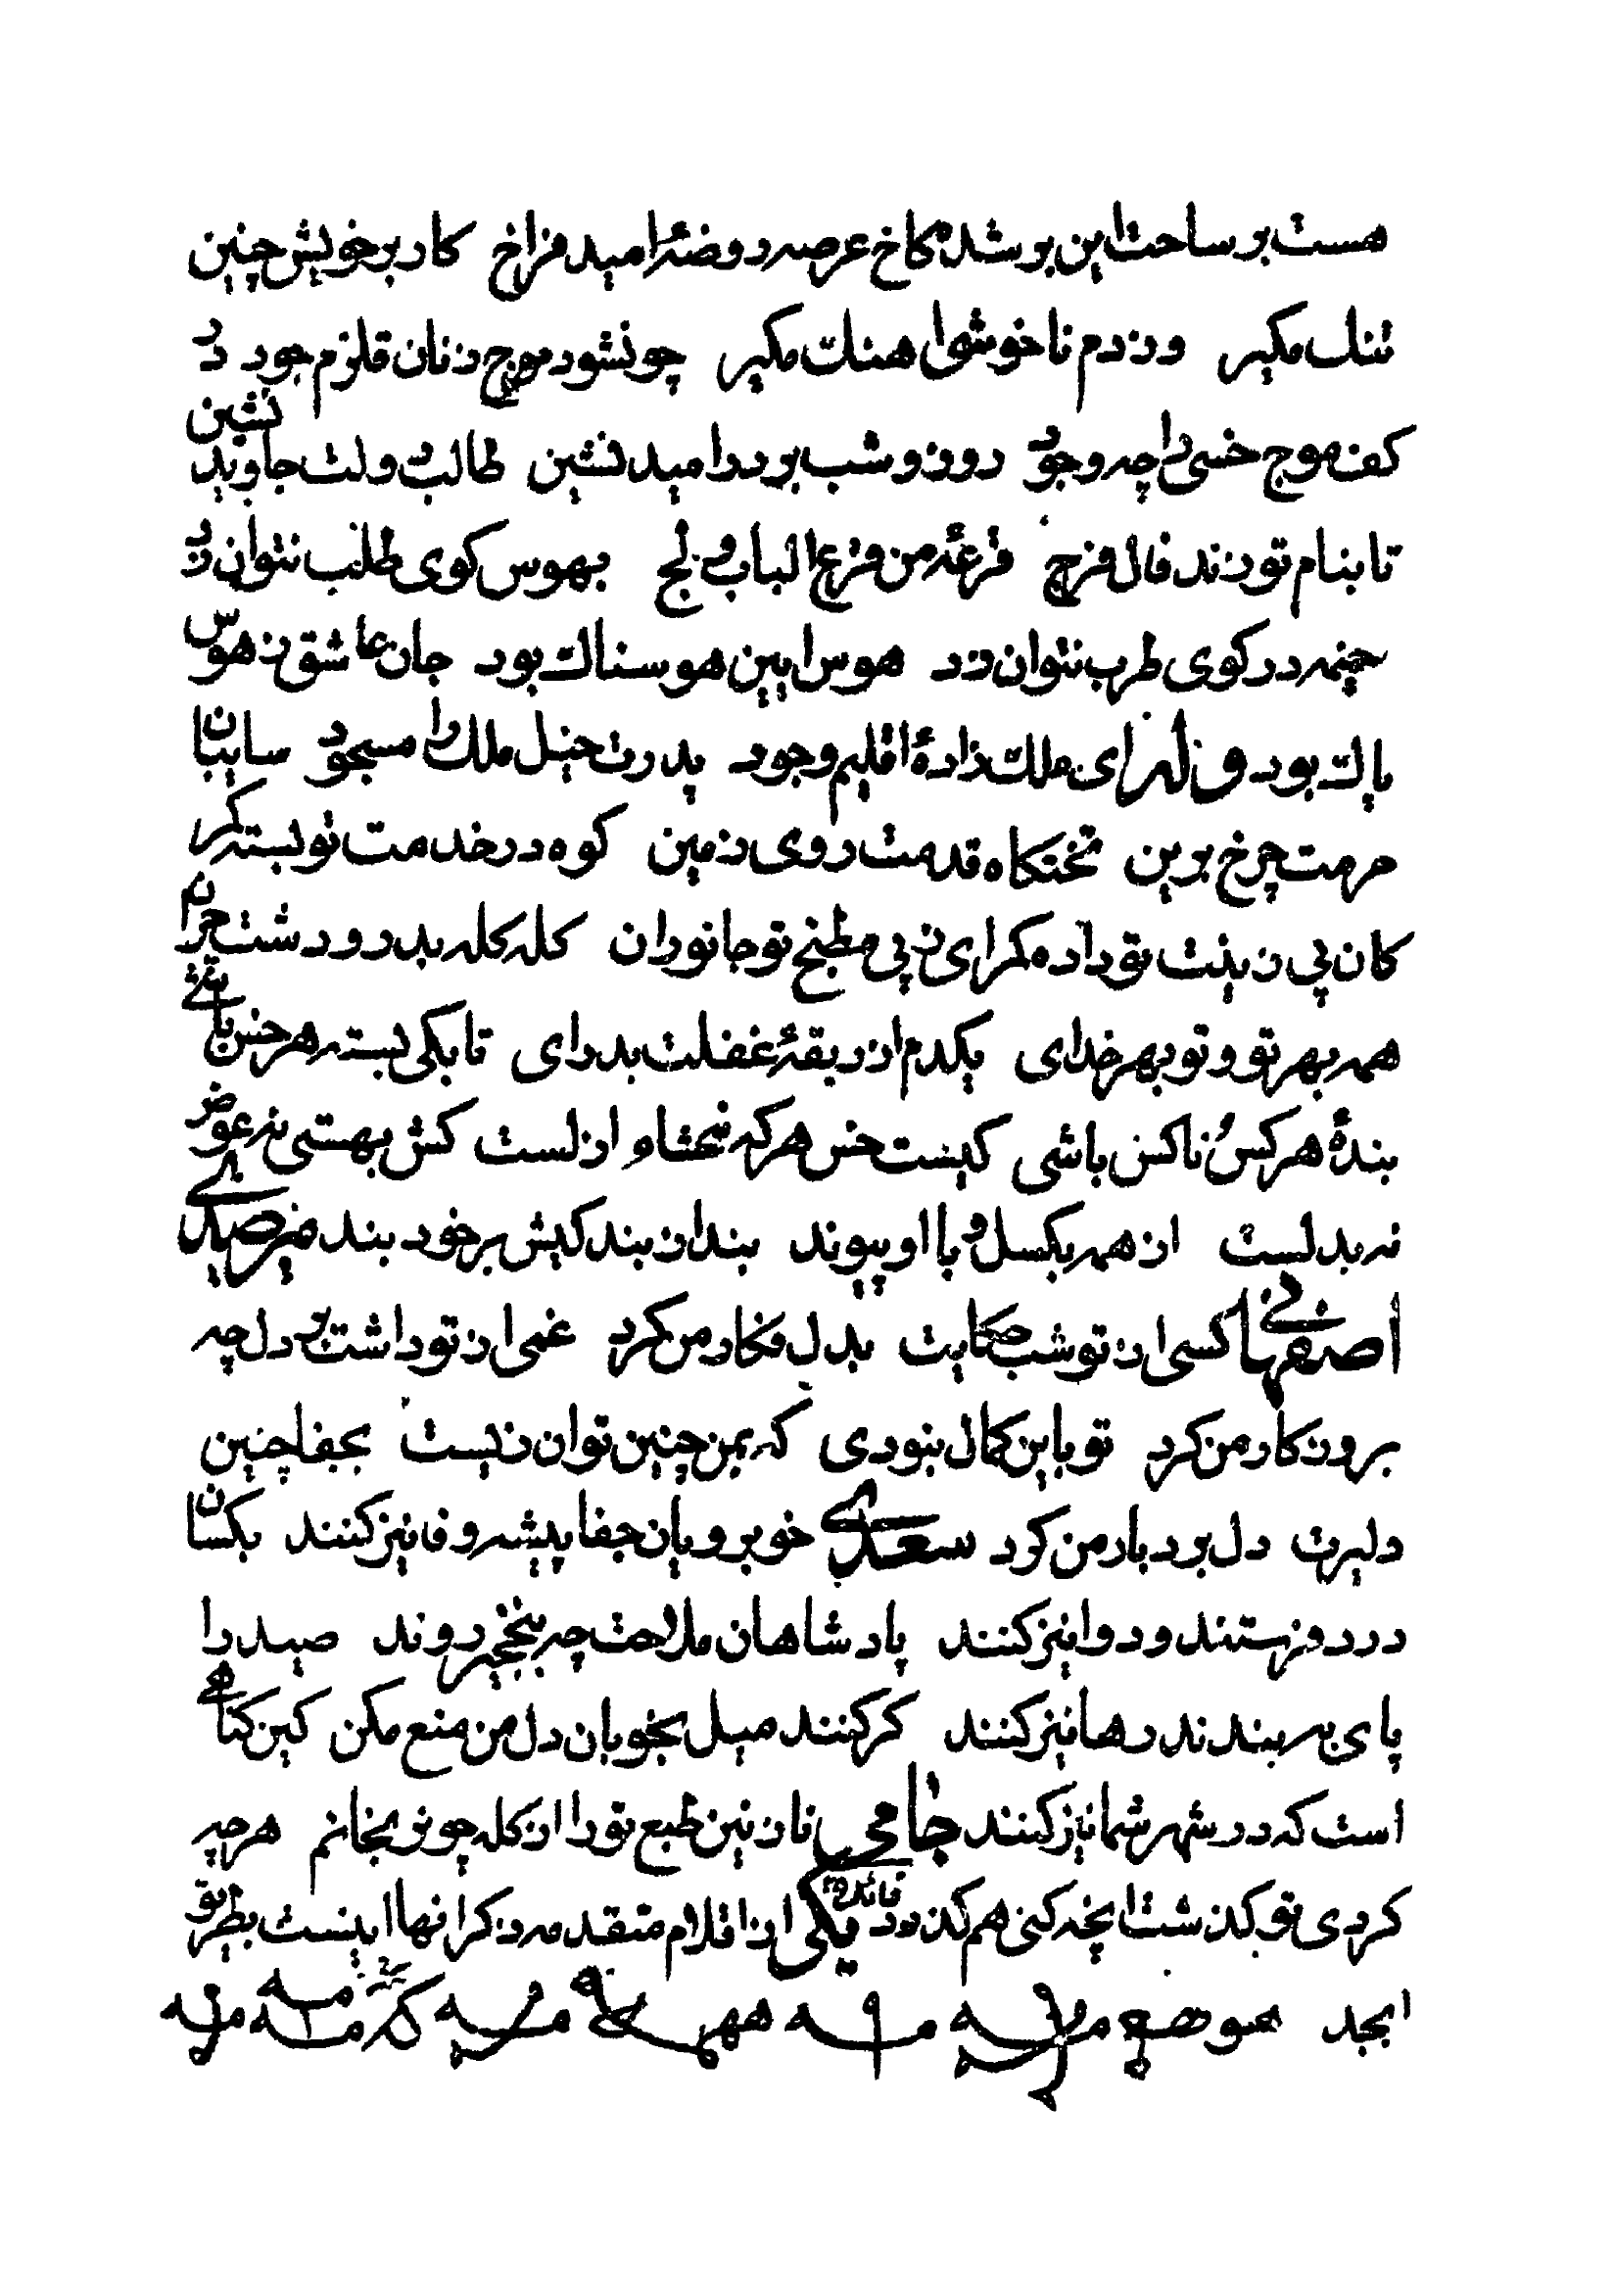 هست بر ساحت این برشده کاخ عرصه روضهٔ امید فراخ کار بر خویش چنین
تنک مکیر وز دم ناخوشی اهنک مکیر چو نشود موج زنان قلزم جود در
کف موج خسی را چه وجود روز و شب بر در امید نشین طالب دولت جاوید نشین
تا بنام تو زند فال فرج قرعهٔ من قرع الباب و لج بهوس کوی طلب نتوان زد
خیمه در کوی طرب نتوان زد هوس ایین هوسناک بود جان عاشق ز هوس
پاک بود و له ای ملک زادهٔ اقلیم وجود پدرت خیل ملک را مسجود سایبان
حرمت چرخ برین تختکاه قدمت روی زمین کوه در خدمت تو بسته کمر
کان پی زینت تو داده کهر ای ز پی مطبخ تو جانوران کله کله بدر و دشت چران
همه بهر تو و تو بهر خدای یکدم از ربقهٔ غفلت بدر ای تا بکی بسته هر خس باشی
بندهٔ هر کس و ناکس باشی کیست خس هر که نه شاه ازلست کش بهستی نه عوض
نه بدلست از همه بکسل و با او پیوند بند از بندکیش بر خود بند میر صیدی
اصفهانی کسی از تو شب حکایت بدل فکار من کرد غمی از تو داشت بر دل چه
برون کار من کرد تو باین کمال بنودی که بمن چنین توان زیست بجفا چنین
دلیرت دل بردبار من کرد سعدی خوبرویان جفا پیشه وفا نیز کنند بکسان
درد فرستند و دوا نیز کنند پادشاهان ملاحت چه بنخجیر روند صید را
پای به بندند رها نیز کنند کر کنند میل بخوبان دل من منع مکن کین کناهی
است که در شهر شما نیز کنند جامی نازنین طبع تو را از کله چون رنجانم هر چه
کردی تو کذشت انچه کنی هم کذرد فائده یکی از اقلام متقدمه ذکر انها اینست بطریق
ابجد